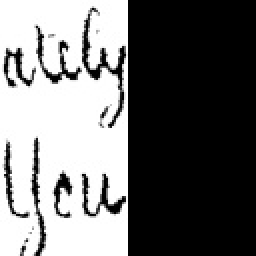 ately
You